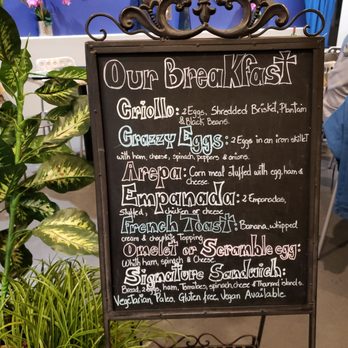 Our Breakfast
Criollo: 2 Eggs, Shredded Brisket, Plantain
& Black beans.
Crazzy Eggs: 2 Eggs in an iron skillet
with ham, cheese, spinach, peppers & onions.
Arepa: Corn meal stuffed with egg, ham &
cheese.
Empanada: 2 Empanadas,
Stuffed, chicken or cheese
French Toast: Banana, whipped
cream & chocolate Topping
Omelet or Scramble egg:
With ham, spinach & Cheese
Signature Sandwich:
Bread, 2 eggs, ham, Tomatoes, spinach, cheese & Thousand island s.
Vegetarian, Paleo, Gluten free, Vegan Available